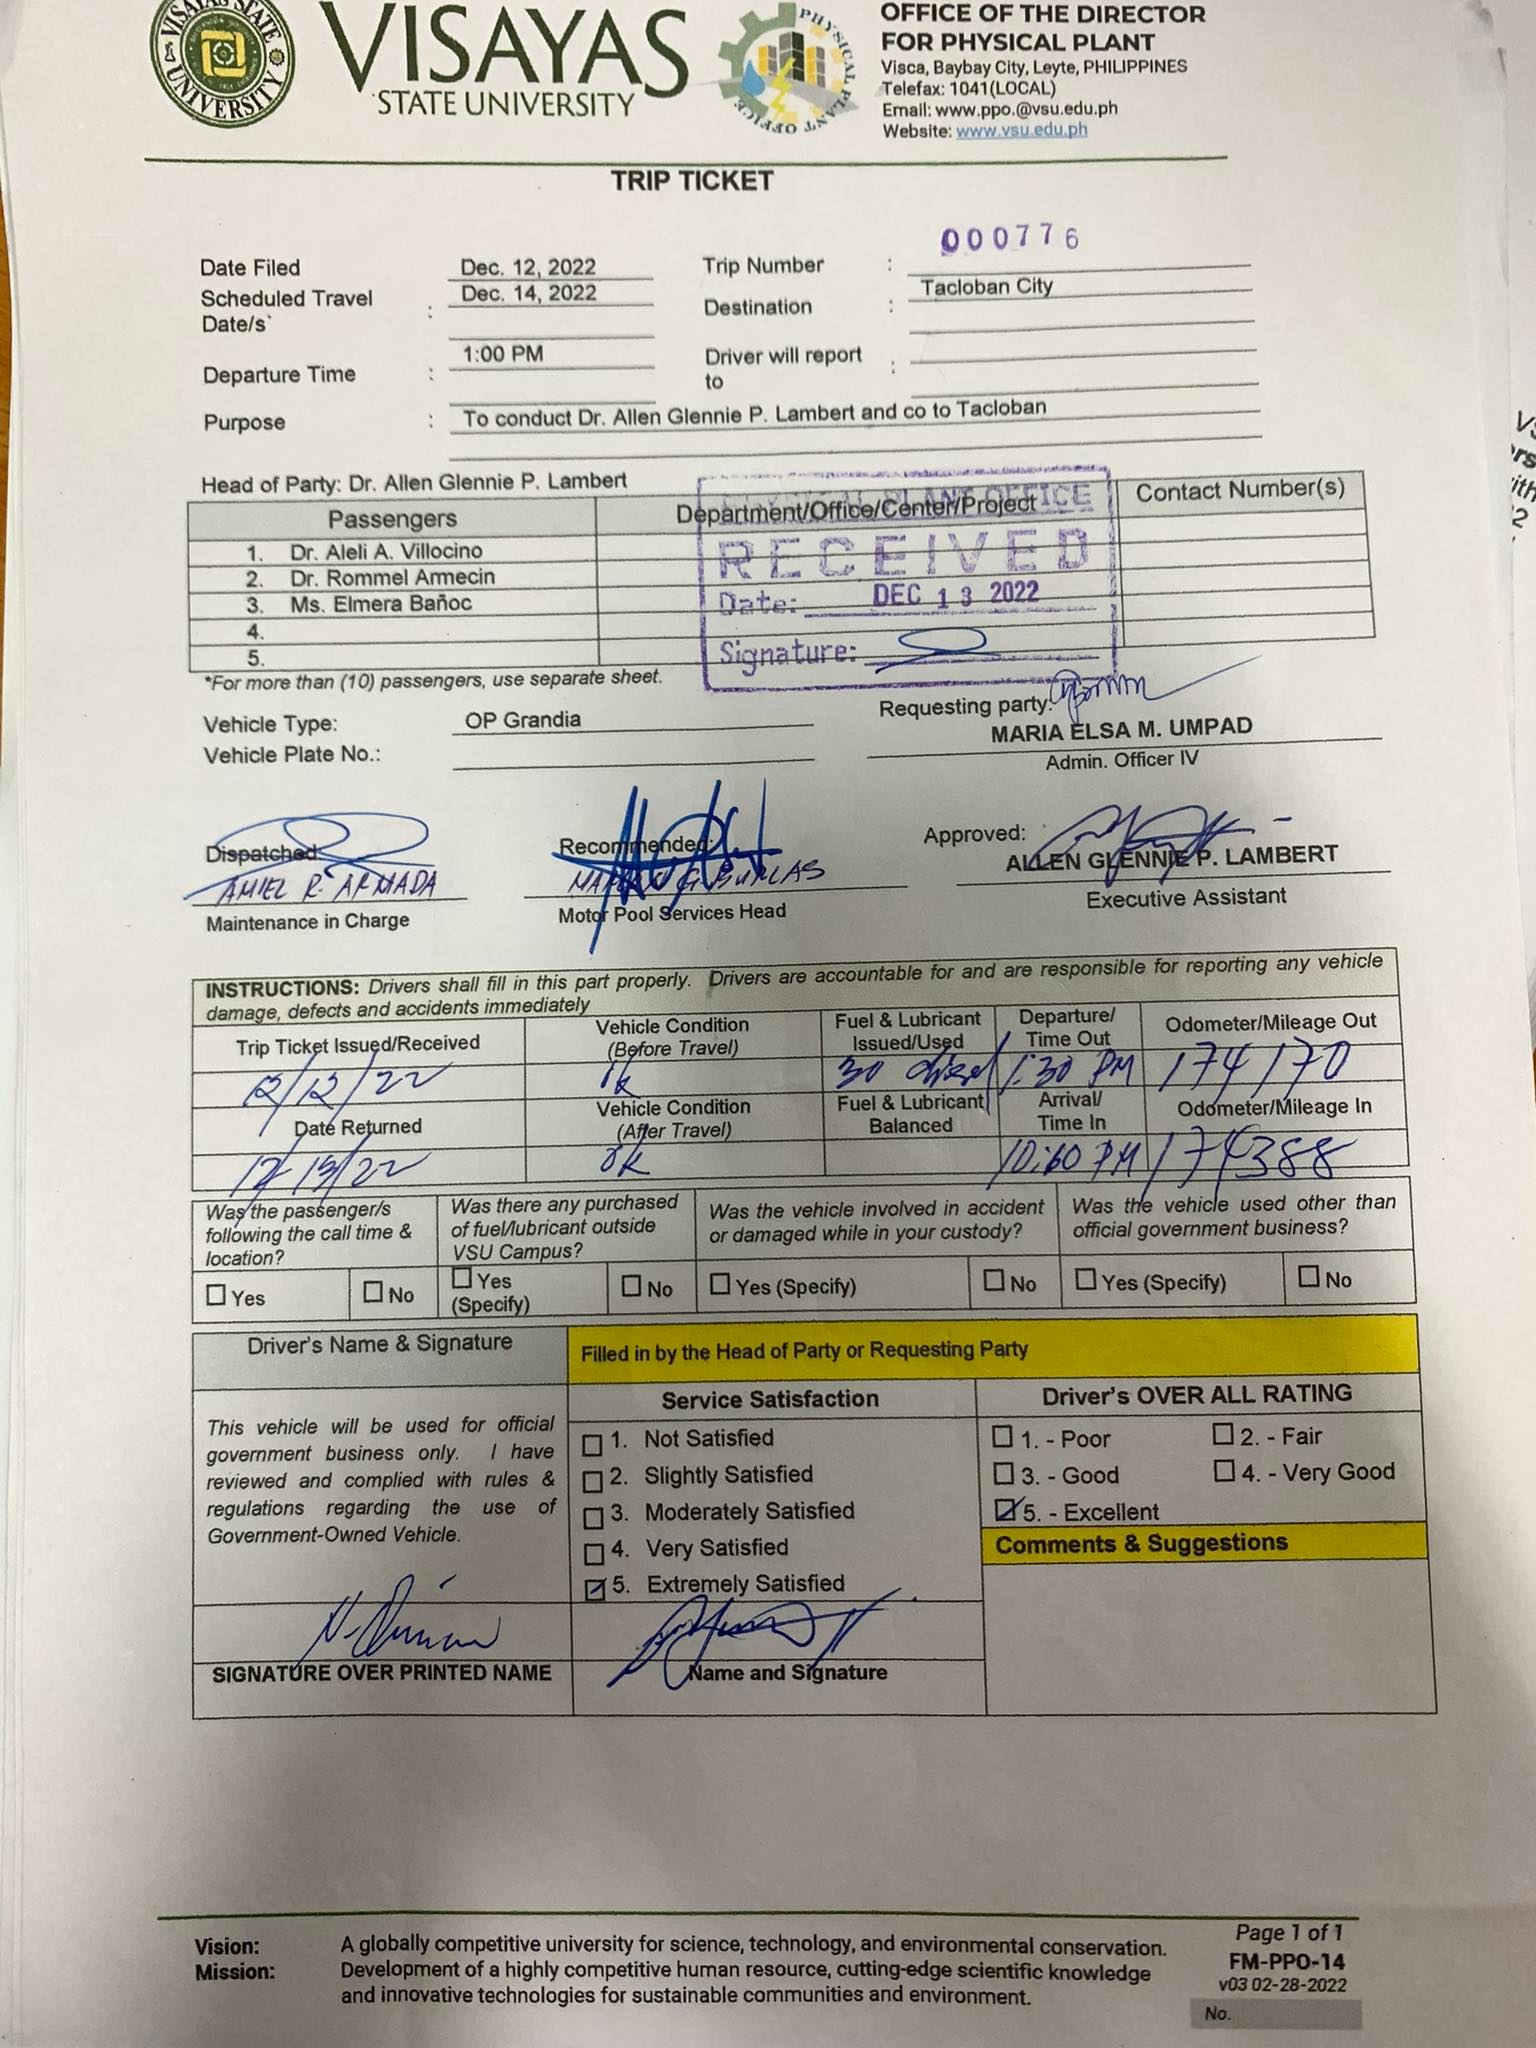 VISAYAS STATE UNIVERSITY
VISAYAS
STATE UNIVERSITY
PHYSICAL PLANT OFFICE
OFFICE OF THE DIRECTOR
FOR PHYSICAL PLANT
Visca, Baybay City, Leyte, PHILIPPINES
Telefax: 1041(LOCAL)
Email: www.ppo.@vsu.edu.ph
Website: www.vsu.edu.ph
TRIP TICKET
000776
Date Filed Dec. 12, 2022 Trip Number :
Scheduled Travel Date/s` : Dec. 14, 2022 Destination : Tacloban City
Departure Time : 1:00 PM Driver will report to :
Purpose : To conduct Dr. Allen Glennie P. Lambert and co to Tacloban
Head of Party: Dr. Allen Glennie P. Lambert
Passengers Department/Office/Center/Project Contact Number(s)
1. Dr. Aleli A. Villocino
2. Dr. Rommel Armecin
3. Ms. Elmera Bañoc
4.
5.
PHYSICAL PLANT OFFICE
RECEIVED
Date: DEC 13 2022
Signature:
*For more than (10) passengers, use separate sheet.
Vehicle Type: OP Grandia Requesting party:
MARIA ELSA M. UMPAD
Vehicle Plate No.: Admin. Officer IV
Dispatched: Recommended: Approved:
AMIEL R. ARMADA ALLEN GLENNIE P. LAMBERT
Maintenance in Charge Motor Pool Services Head Executive Assistant
INSTRUCTIONS: Drivers shall fill in this part properly. Drivers are accountable for and are responsible for reporting any vehicle
damage, defects and accidents immediately
Trip Ticket Issued/Received Vehicle Condition (Before Travel) Fuel & Lubricant Issued/Used Departure/ Time Out Odometer/Mileage Out
ok 30 1:30 PM 174170
Date Returned Vehicle Condition (After Travel) Fuel & Lubricant Balanced Arrival/ Time In Odometer/Mileage In
ok PM 174388
Was the passenger/s following the call time & location? Was there any purchased of fuel/lubricant outside VSU Campus? Was the vehicle involved in accident or damaged while in your custody? Was the vehicle used other than official government business?
Yes No Yes (Specify) No Yes (Specify) No Yes (Specify) No
Driver's Name & Signature
Filled in by the Head of Party or Requesting Party
This vehicle will be used for official
government business only. I have
reviewed and complied with rules &
regulations regarding the use of
Government-Owned Vehicle.
SIGNATURE OVER PRINTED NAME
Service Satisfaction
1. Not Satisfied
2. Slightly Satisfied
3. Moderately Satisfied
4. Very Satisfied
5. Extremely Satisfied
Name and Signature
Driver's OVER ALL RATING
1. - Poor 2. - Fair
3. - Good 4. - Very Good
5. - Excellent
Comments & Suggestions
Vision: A globally competitive university for science, technology, and environmental conservation.
Mission: Development of a highly competitive human resource, cutting-edge scientific knowledge
and innovative technologies for sustainable communities and environment.
Page 1 of 1
FM-PPO-14
v03 02-28-2022
No.